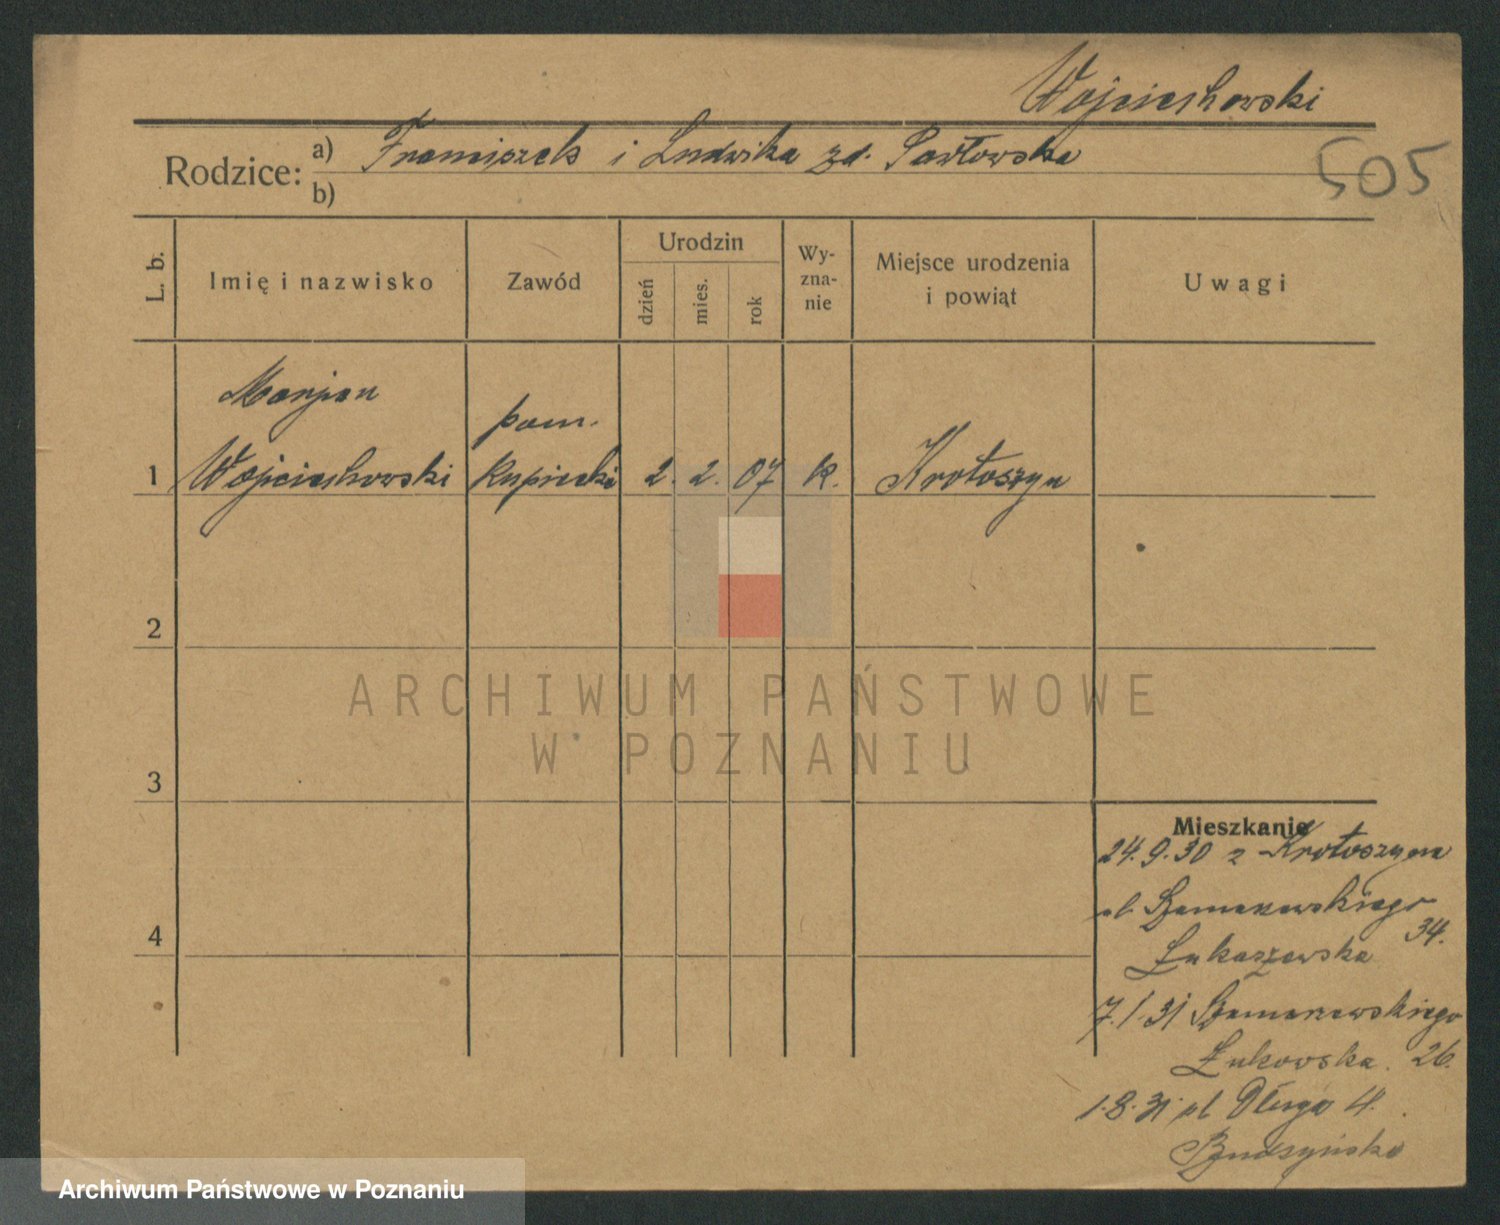 Wojciechowski
505
Rodzice: a) Franciszek i Ludwika zd. Pawłowska
b)
L. b.
Imię i nazwisko
Zawód
Urodzin
dzień
mies.
rok
Wy-
zna-
nie
Miejsce urodzenia
i powiąt
Uwagi
Marjan
pom.
1 Wojciechowski kupiecki 2. 2. 07 k. Krotoszyn
2
3
4
ARCHIWUM PAŃSTWOWE
W POZNANIU
Mieszkanie
24.9.30 z Krotoszyna
ul Szamarzewskiego
34.
Łukaszewska
7.1.31 Szamarzewskiego
26.
1.8.31 ul Długa 4.
Archiwum Państwowe w Poznaniu